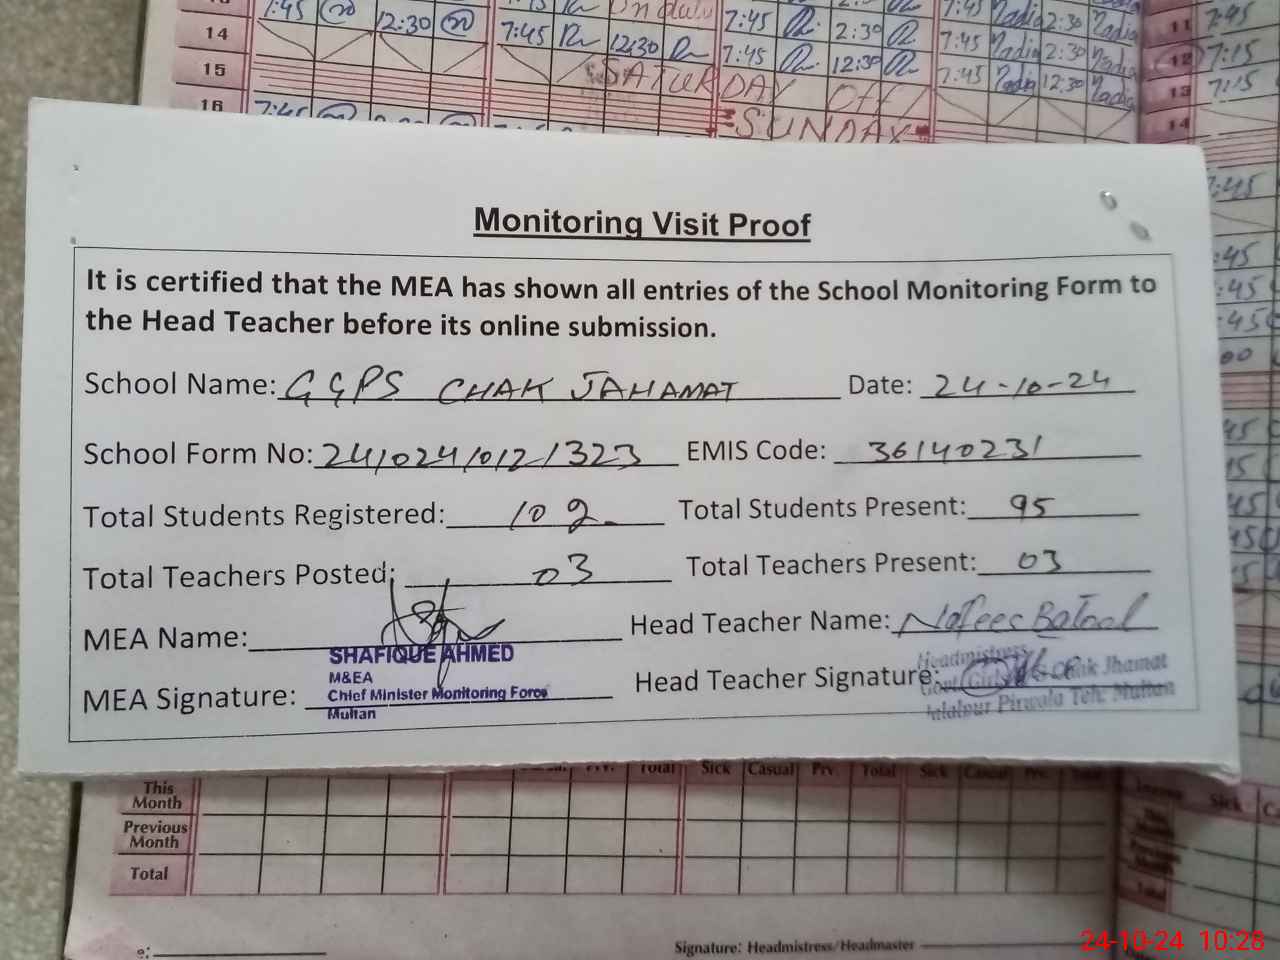 7:45 12:30
14 7:45 12:30 7:45 2:30 7:45 Nadia 2:30 Nadia
15 SATURDAY OFF 7:45 12:30 7:45 Nadia 12:30 Nadia
16 7:45 SUNDAY
11 7:45
12 7:15
13 7:15
14
Monitoring Visit Proof
It is certified that the MEA has shown all entries of the School Monitoring Form to
the Head Teacher before its online submission.
School Name: GGPS CHAK JAHAMAT Date: 24-10-24
School Form No: 24102410121323 EMIS Code: 36140231
Total Students Registered: 102 Total Students Present: 95
Total Teachers Posted: 03 Total Teachers Present: 03
MEA Name: Head Teacher Name: Nafees Batool
SHAFIQUE AHMED
M&EA
Chief Minister Monitoring Force
Multan
MEA Signature: Head Teacher Signature:
Headmistress
Govt Girls Chak Jhamat
Jalalpur Pirwala Teh: Multan
Total Sick Casual Prv. Total Sick Casual Prv. Total
This Month
Previous Month
Total
Signature: Headmistress/Headmaster
24-10-24 10:28